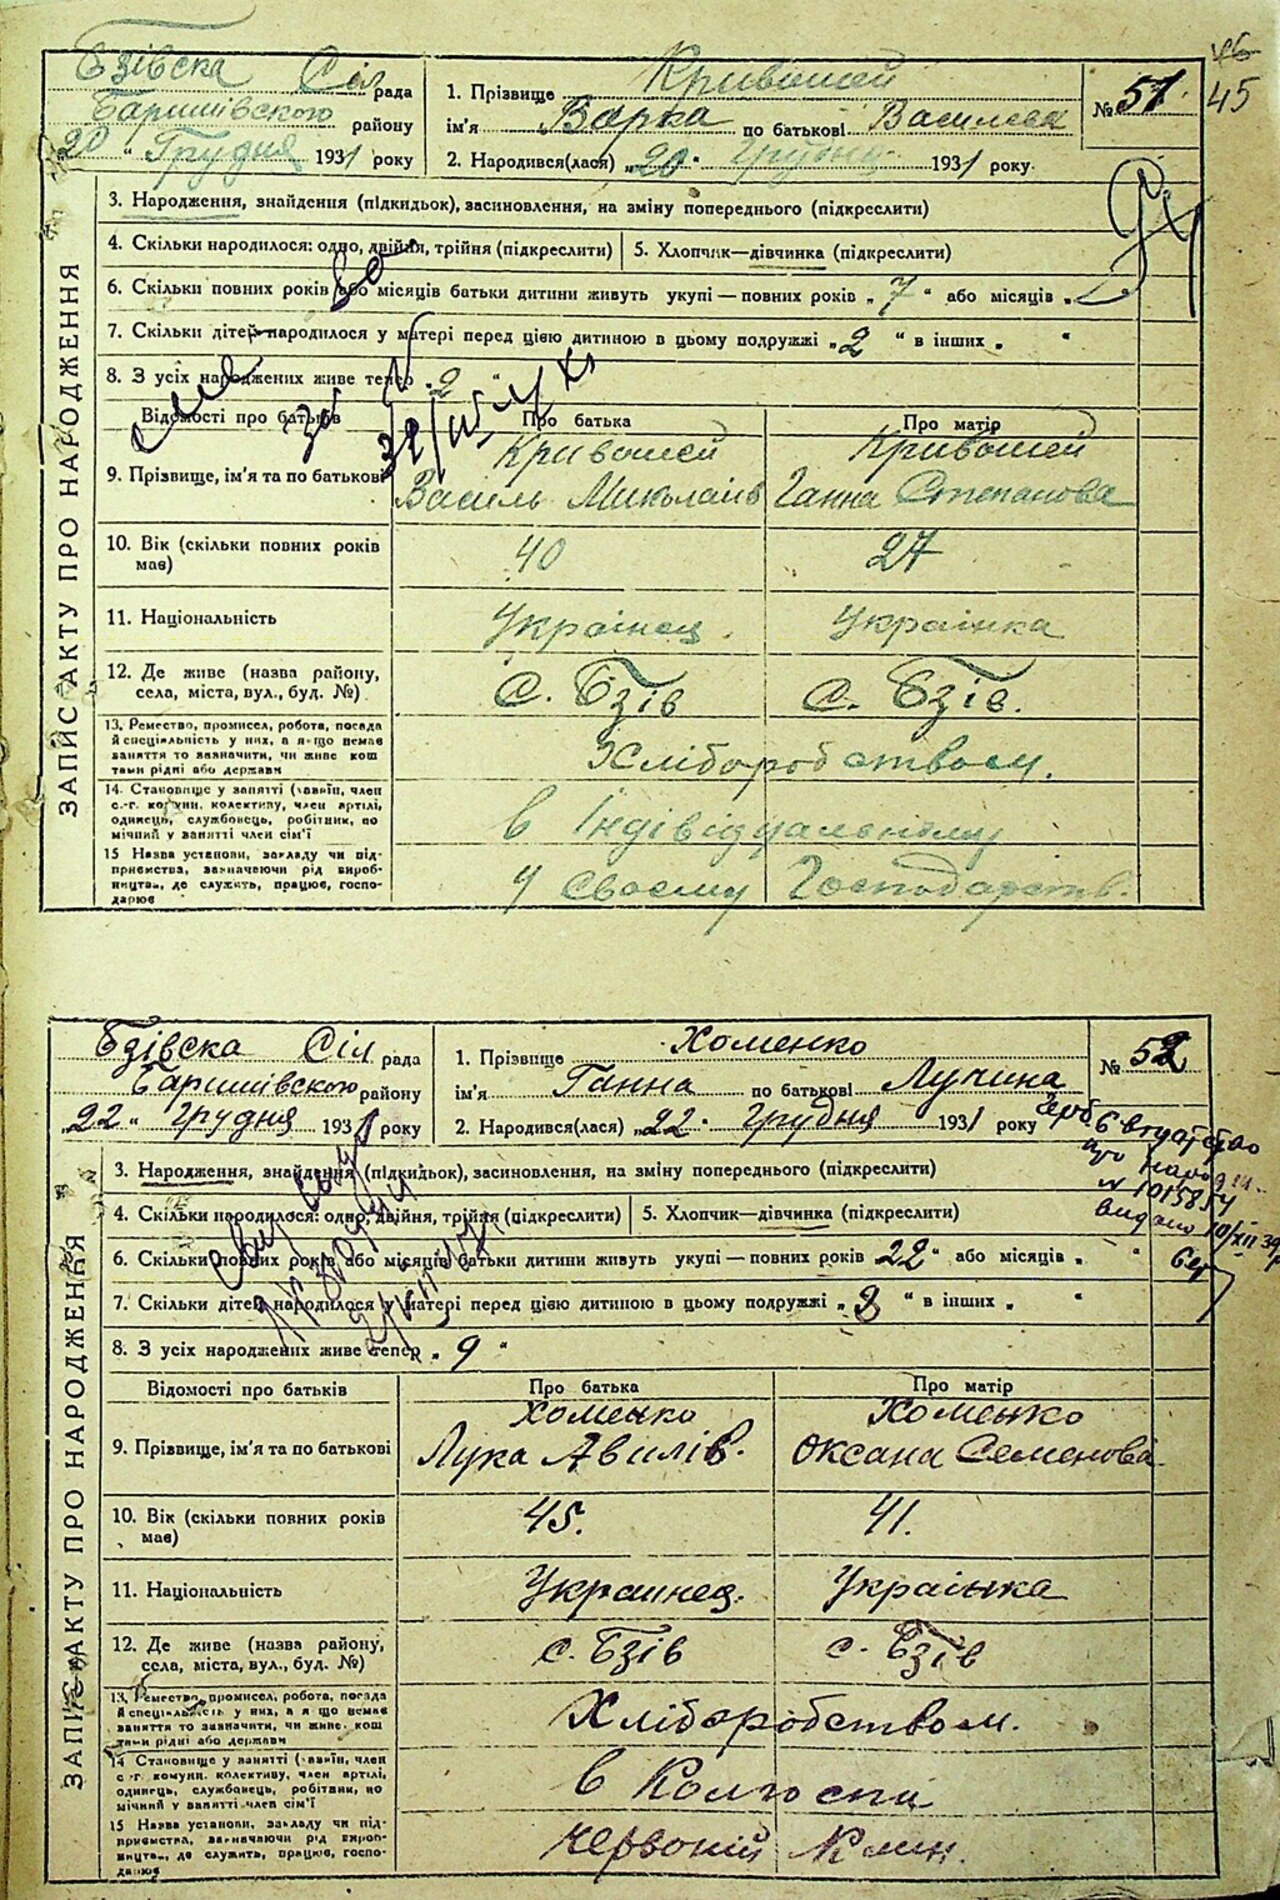 45
Бзівска Сіл рада
Баришівского району
20 " Грудня 1931 року
1. Прізвище Кривошей
ім'я Варка по батькові Василева
2. Народився(лася) „20" Грудня 1931 року
№ 51.
ЗАПИС АКТУ ПРО НАРОДЖЕННЯ
3. Народження, знайдення (підкидьок), засиновлення, на зміну попереднього (підкреслити)
4. Скільки народилося: одно, двійня, трійня (підкреслити) 5. Хлопчик—дівчинка (підкреслити)
6. Скільки повних років або місяців батьки дитини живуть укупі — повних років „ 7 " або місяців „
7. Скільки дітей народилося у матері перед цією дитиною в цьому подружжі „ 2 " в інших „ "
8. З усіх народжених живе тепер „ 2 "
Відомості про батьків Про батька Про матір
9. Прізвище, ім'я та по батькові
Кривошей Василь Миколаїв
Кривошей Ганна Степанова
10. Вік (скільки повних років має) 40 27
11. Національність Українец Українка
12. Де живе (назва району, села, міста, вул., буд. №) с. Бзів с. Бзів.
13. Ремество, промисел, робота, посада й спеціяльність у них, а якщо немає заняття то зазначити, чи живе коштами рідні або держави
Хліборобством.
14. Становище у занятті (хазяїн, член с.-г. комуни, колективу, член артілі, одинець, службовець, робітник, помічний у занятті член сім'ї
в Індівідуальному
15 Назва установи, закладу чи підприємства, зазначаючи рід виробництва, де служить, працює, господарює
у своєму Господарств.
Бзівска Сіл рада
Баришівского району
22 " Грудня 1931 року
1. Прізвище Хоменко
ім'я Ганна по батькові Лучина
2. Народився(лася) „22" Грудня 1931 року
№ 52
про народж.
N 1015854
видано 10/XII 39р
ЗАПИС АКТУ ПРО НАРОДЖЕННЯ
3. Народження, знайдення (підкидьок), засиновлення, на зміну попереднього (підкреслити)
4. Скільки народилося: одно, двійня, трійня (підкреслити) 5. Хлопчик—дівчинка (підкреслити)
6. Скільки повних років або місяців батьки дитини живуть укупі — повних років 22 " або місяців „ "
7. Скільки дітей народилося у матері перед цією дитиною в цьому подружжі „ " в інших „ "
8. З усіх народжених живе тепер „ 9 "
Відомості про батьків Про батька Про матір
9. Прізвище, ім'я та по батькові
Хоменко Лука Авилів.
Хоменко Оксана Семенова
10. Вік (скільки повних років має) 45. 41.
11. Національність Украинец. Українка
12. Де живе (назва району, села, міста, вул., буд. №) с. Бзів с. Бзів
13. Ремество, промисел, робота, посада й спеціяльність у них, а якщо немає заняття то зазначити, чи живе коштами рідні або держави
Хліборобством.
14 Становище у занятті (хазяїн, член с.-г. комуни, колективу, член артілі, одинець, службовець, робітник, помічний у занятті член сім'ї
в Колгоспи
15 Назва установи, закладу чи підприємства, зазначаючи рід виробництва, де служить, працює, господарює
Червоний Клин.